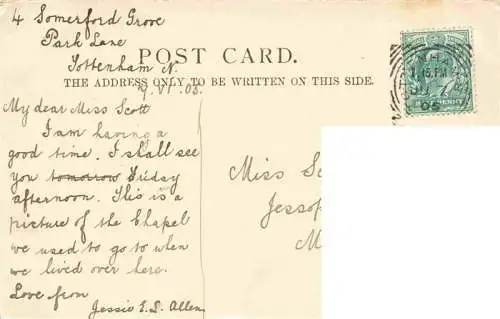 4 Somerford Grove
Park Lane
Tottenham N.
POST CARD.
THE ADDRESS ONLY TO BE WRITTEN ON THIS SIDE.
My dear Miss Scott
I am having a
good time. I shall see
you tomorrow Friday
afternoon. This is a
picture of the Chapel
we used to go to when
we lived over here.
Love from
Jessie E. S. Allen
Miss Sc
Jessop
M
1.15 PM
05